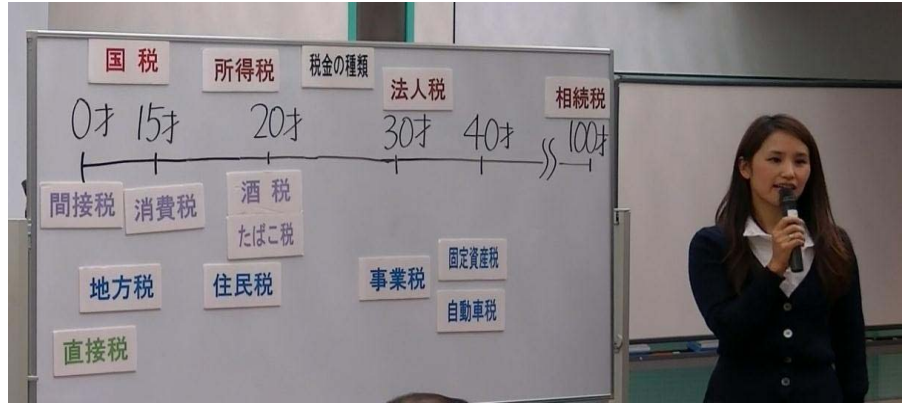 国税
所得税
税金の種類
法人税
相続税
0才 15才 20才 30才 40才 100才
間接税
消費税
酒税
たばこ税
地方税
住民税
事業税
固定資産税
自動車税
直接税